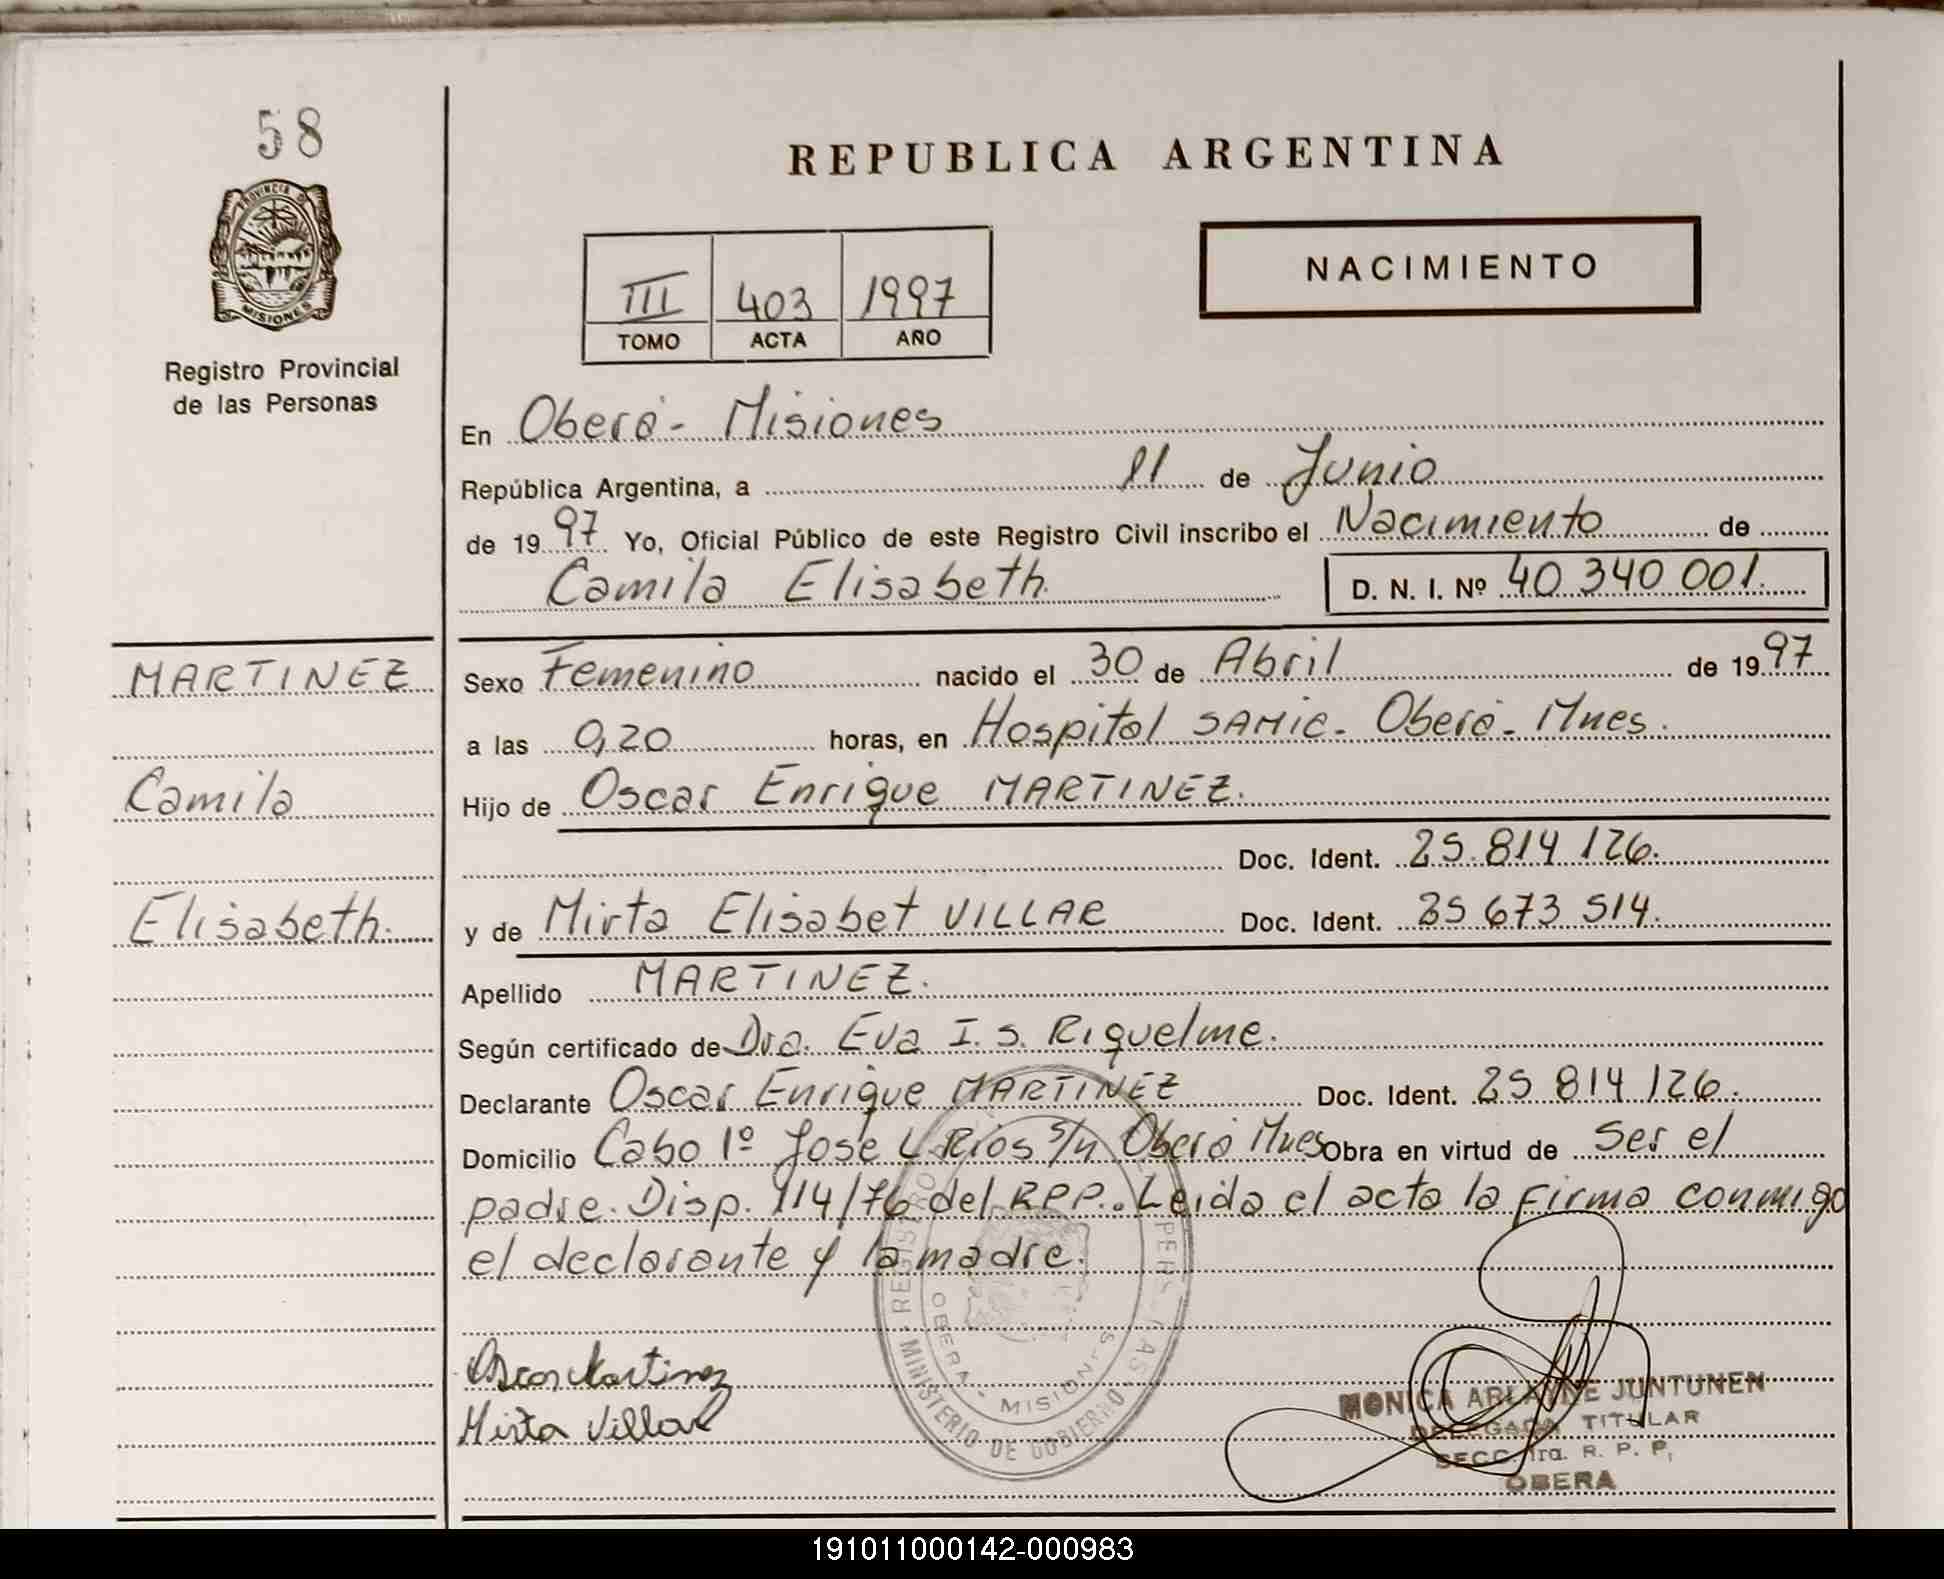 58
PROVINCIA D
MISIONES
Registro Provincial
de las Personas
REPUBLICA ARGENTINA
III 403 1997
TOMO ACTA AÑO
NACIMIENTO
En Oberá - Misiones
República Argentina, a 11 de Junio
de 1997 Yo, Oficial Público de este Registro Civil inscribo el Nacimiento de
Camila Elisabeth. D. N. I. Nº 40 340 001.
MARTINEZ
Camila
Elisabeth.
Sexo Femenino nacido el 30 de Abril de 1997
a las 0,20 horas, en Hospital SAMIC - Oberá - Mnes.
Hijo de Oscar Enrique MARTINEZ.
Doc. Ident. 25.814 126.
y de Mirta Elisabet VILLAR Doc. Ident. 25 673 514.
Apellido MARTINEZ.
Según certificado de Dra. Eva I. S. Riquelme.
Declarante Oscar Enrique MARTINEZ Doc. Ident. 25 814 126.
Domicilio Cabo 1º José L Rios s/n Oberá Mnes Obra en virtud de Ser el
padre. Disp. 114/76 del RPP. Leida el acta la firma conmigo
el declarante y la madre.
Oscar Martinez
Mirta Villar
REGISTRO
MINISTERIO DE GOBIERNO
OBERA - MISIONES
MONICA ARLAYNE JUNTUNEN
DELEGADA TITULAR
SECC. 1ra. R. P. P.
OBERA
191011000142-000983